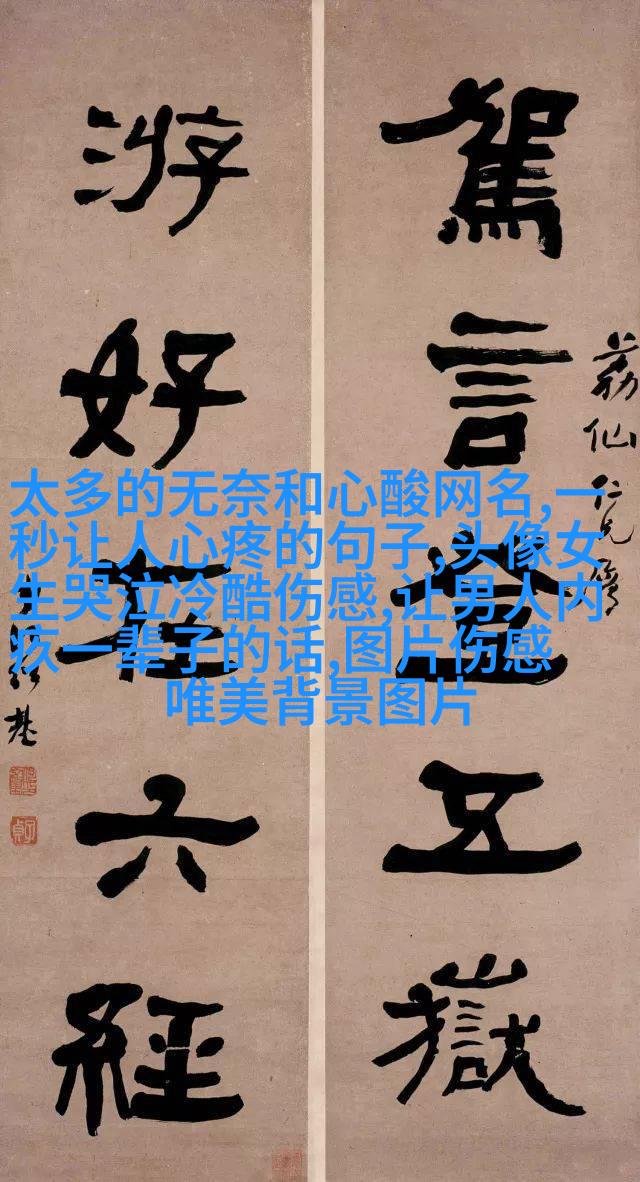 駕言登五嶽
荔仙仁兄屬
游好在六經
紹基
子貞
太多的无奈和心酸网名,一
秒让人心疼的句子,头像女
生哭泣冷酷伤感,让男人内
疚一辈子的话,图片伤感
唯美背景图片